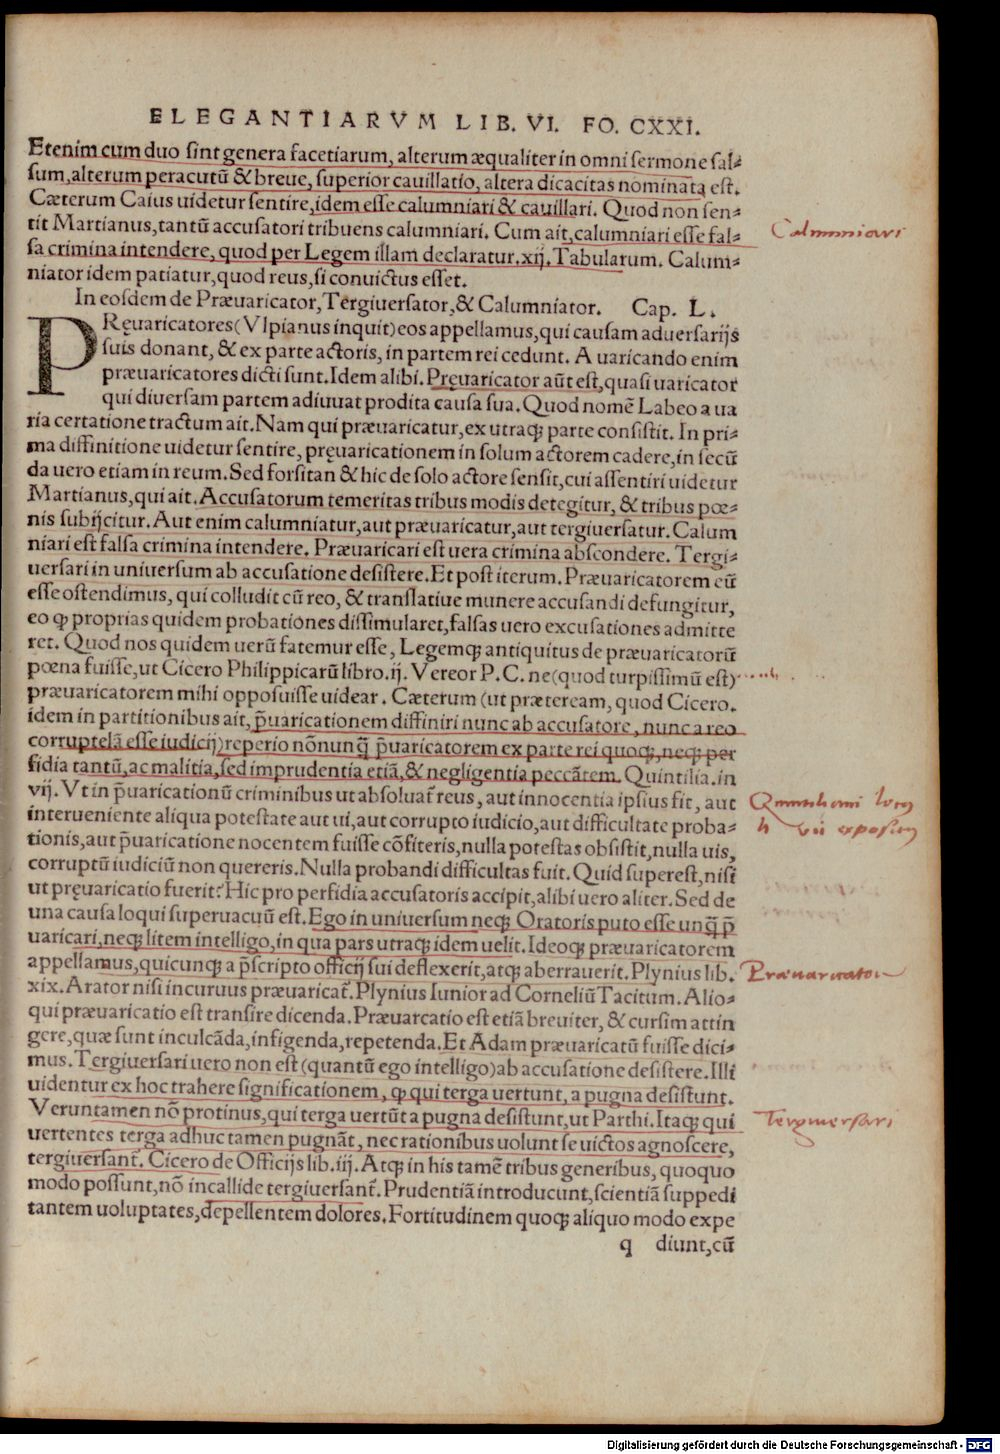 ELEGANTIARVM LIB. VI. FO. CXXI.
Etenim cum duo sint genera facetiarum, alterum æqualiter in omni sermone sal-
sum, alterum peracutũ & breue, superior cauillatio, altera dicacitas nominata est.
Cæterum Caius uidetur sentire, idem esse calumniari & cauillari. Quod non sen-
tit Martianus, tantũ accusatori tribuens calumniari. Cum ait, calumniari esse fal-
Calumniari
sa crimina intendere, quod per Legem illam declaratur. xij. Tabularum. Calum-
niator idem patiatur, quod reus, si conuictus esset.
In eosdem de Præuaricator, Tergiuersator, & Calumniator. Cap. L.
PRęuaricatores (Vlpianus inquit) eos appellamus, qui causam aduersarijs
suis donant, & ex parte actoris, in partem rei cedunt. A uaricando enim
præuaricatores dicti sunt. Idem alibi. Pręuaricator aũt est, quasi uaricator
qui diuersam partem adiuuat prodita causa sua. Quod nomẽ Labeo a ua
ria certatione tractum ait. Nam qui præuaricatur, ex utraqꝫ parte consistit. In pri-
ma diffinitione uidetur sentire, pręuaricationem in solum actorem cadere, in secũ
da uero etiam in reum. Sed forsitan & hic de solo actore sensit, cui assentiri uidetur
Martianus, qui ait. Accusatorum temeritas tribus modis detegitur, & tribus pœ-
nis subijcitur. Aut enim calumniatur, aut præuaricatur, aut tergiuersatur. Calum
niari est falsa crimina intendere. Præuaricari est uera crimina abscondere. Tergi-
uersari in uniuersum ab accusatione desistere. Et post iterum. Præuaricatorem eũ
esse ostendimus, qui colludit cũ reo, & translatiue munere accusandi defungitur,
eo ꝙ proprias quidem probationes dissimularet, falsas uero excusationes admitte
ret. Quod nos quidem uerũ fatemur esse, Legemqꝫ antiquitus de præuaricatorũ
pœna fuisse, ut Cicero Philippicarũ libro. ij. Vereor P. C. ne (quod turpissimũ est)
præuaricatorem mihi opposuisse uidear. Cæterum (ut præteream, quod Cicero.
idem in partitionibus ait, p̃uaricationem diffiniri nunc ab accusatore, nunc a reo
corruptelã esse iudicij) reperio nõnunq̃ p̃uaricatorem ex parte rei quoqꝫ, neqꝫ per
fidia tantũ, ac malitia, sed imprudentia etiã, & negligentia peccãtem. Quintilia. in
vij. Vt in p̃uaricationũ criminibus ut absoluat̃ reus, aut innocentia ipsius fit, aut
Quintiliani locus
interueniente aliqua potestate aut ui, aut corrupto iudicio, aut difficultate proba-
li vii expositus
tionis, aut p̃uaricatione nocentem fuisse cõfiteris, nulla potestas obsistit, nulla uis,
corruptũ iudiciũ non quereris. Nulla probandi difficultas fuit. Quid superest, nisi
ut pręuaricatio fuerit? Hic pro perfidia accusatoris accipit, alibi uero aliter. Sed de
una causa loqui superuacuũ est. Ego in uniuersum neqꝫ Oratoris puto esse unq̃ p̃
uaricari, neqꝫ litem intelligo, in qua pars utraqꝫ idem uelit. Ideoqꝫ præuaricatorem
appellamus, quicunqꝫ a p̃scripto officij sui deflexerit, atqꝫ aberrauerit. Plynius lib.
Præuaricator
xix. Arator nisi incuruus præuaricat̃. Plynius Iunior ad Corneliũ Tacitum. Alio-
qui præuaricatio est transire dicenda. Præuarcatio est etiã breuiter, & cursim attin
gere, quæ sunt inculcãda, infigenda, repetenda. Et Adam præuaricatũ fuisse dici-
mus. Tergiuersari uero non est (quantũ ego intelligo) ab accusatione desistere. Illi
uidentur ex hoc trahere significationem, ꝙ qui terga uertunt, a pugna desistunt.
Veruntamen nõ protinus, qui terga uertũt a pugna desistunt, ut Parthi. Itaqꝫ qui
Tergiuersari
uertentes terga adhuc tamen pugnãt, nec rationibus uolunt se uictos agnoscere,
tergiuersant̃. Cicero de Officijs lib. iij. Atqꝫ in his tamẽ tribus generibus, quoquo
modo possunt, nõ incallide tergiuersant̃. Prudentiã introducunt, scientiã suppedi
tantem uoluptates, depellentem dolores. Fortitudinem quoqꝫ aliquo modo expe
q diunt, cũ
Digitalisierung gefördert durch die Deutsche Forschungsgemeinschaft - DFG